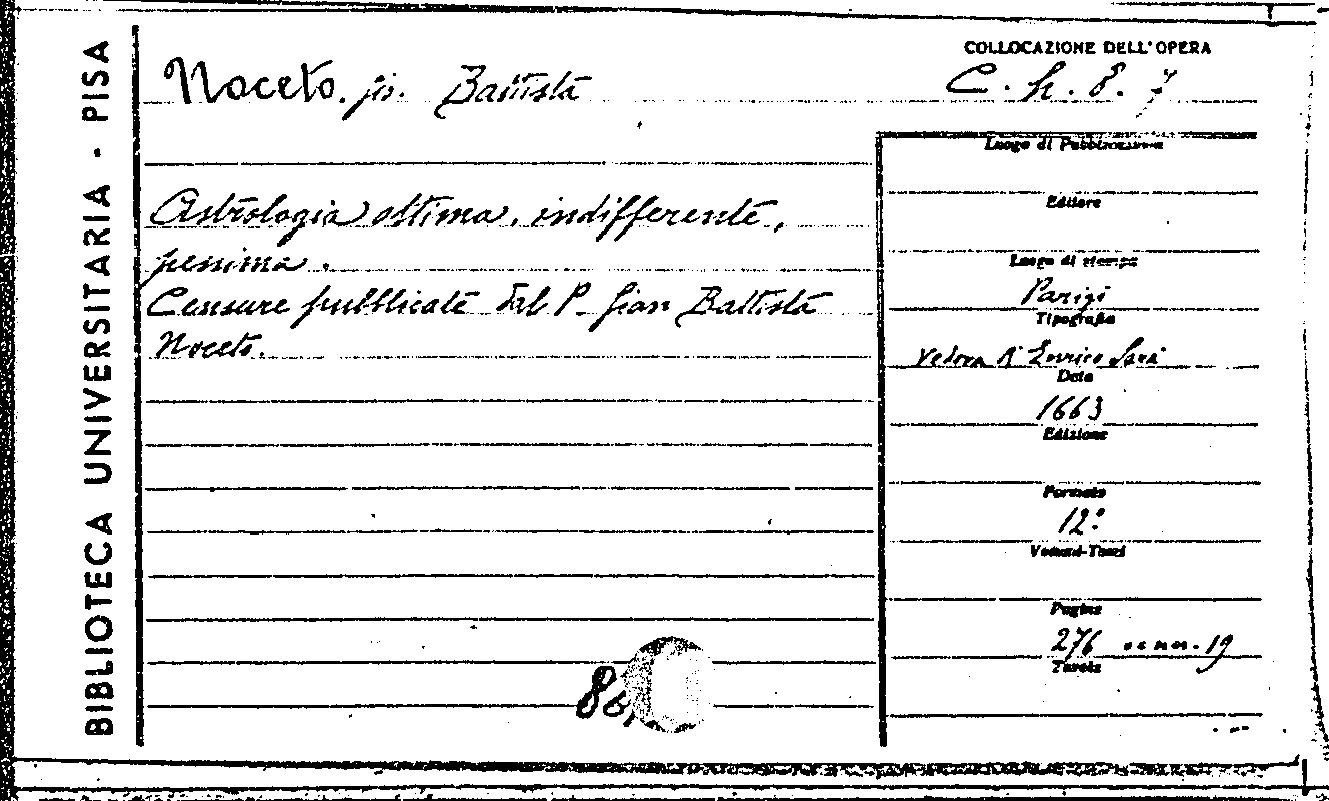 BIBLIOTECA UNIVERSITARIA - PISA
Noceto. Gio. Battista
COLLOCAZIONE DELL'OPERA
C. h. 8. 7
Luogo di Pubblicazione
Astrologia ottima, indifferente,
pessima.
Censure pubblicate dal P. Gian Battista
Noceto.
Editore
Luogo di stampa
Parigi
Tipografia
Vedova d'Enrico
Data
1663
Edizione
Formato
12º
Volumi-Tomi
Pagine
276 19
Tavole
86